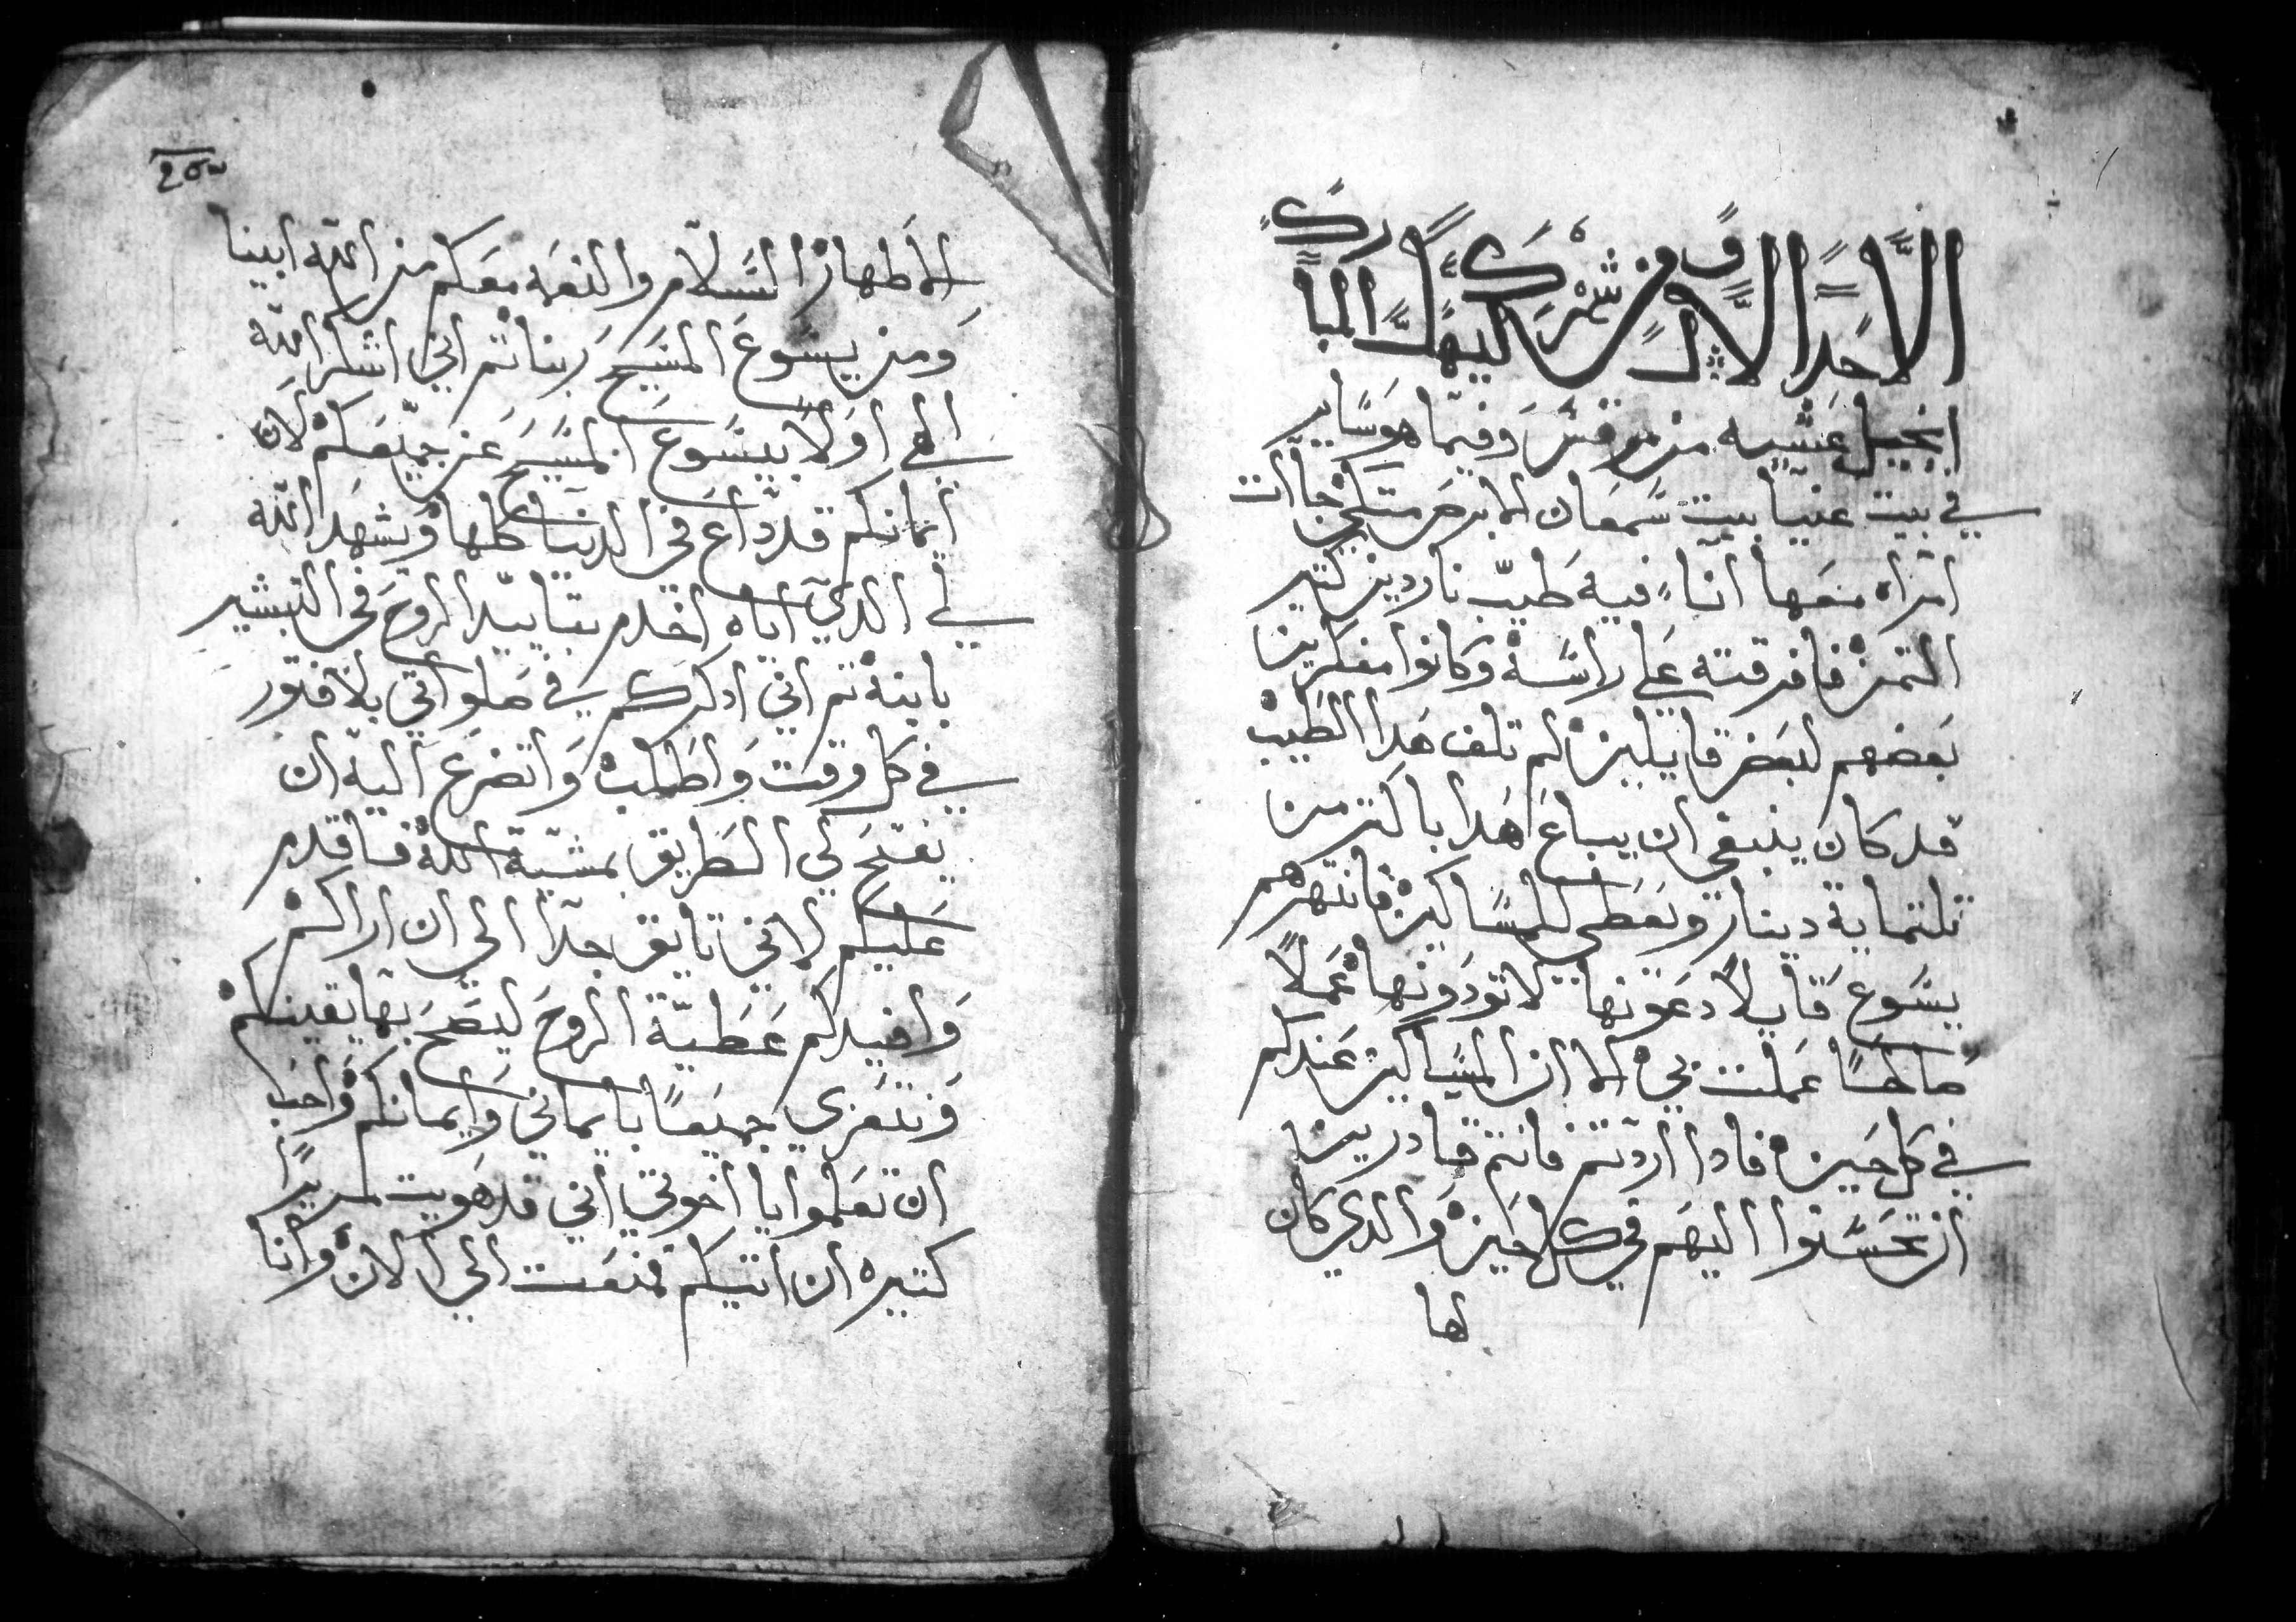 الاحد الاول من شهر كيهك المبارك
انجيل عشيه من مرقس وفيما هو ساير
في بيت عنيا بيت سمعان الابرص متكي جات
امراه معها انا فيه طيب ناردين كتير
التمن فافرقته علي راسه وكانوا مفكرين
بعضهم لبعض قايلين لم تلف هدا الطيب
قد كان ينبغي ان يباع هدا باكتر من
تلتماية دينار ويعطي للمساكين فانتهرهم
يسوع قايلا دعونها لا تودونها عملا
صالحا عملت بي لان المساكين عندكم
في كل حين فادا اردتم فانتم قادرين
ان تحسنوا اليهم في كل حين والدي كان
لها
الاطهار السلام والنعمه معكم من الله ابينا
ومن يسوع المسيح ربنا تم اني اشكر الله
الهي اولا بيسوع المسيح عن جميعكم لان
ايمانكم قد داع في الدنيا كلها ويشهد الله
لي الدي اياه اخدم بتاييد الروح في التبشير
بابنه تم اني ادكركم في صلواتي بلا فتور
في كل وقت واطلب واتضرع اليه ان
يفتح لي الطريق بمشية الله فاقدم
عليكم لانني تايق جدا الي ان اراكم
وافيدكم عطية الروح ليصح بها يقينكم
ونتعزي جميعا بايماني وايمانكم واحب
ان تعلموا يا اخوتي اني قد هويت لمرارا
كتيره ان اتيكم فمنعت الي الان وانا